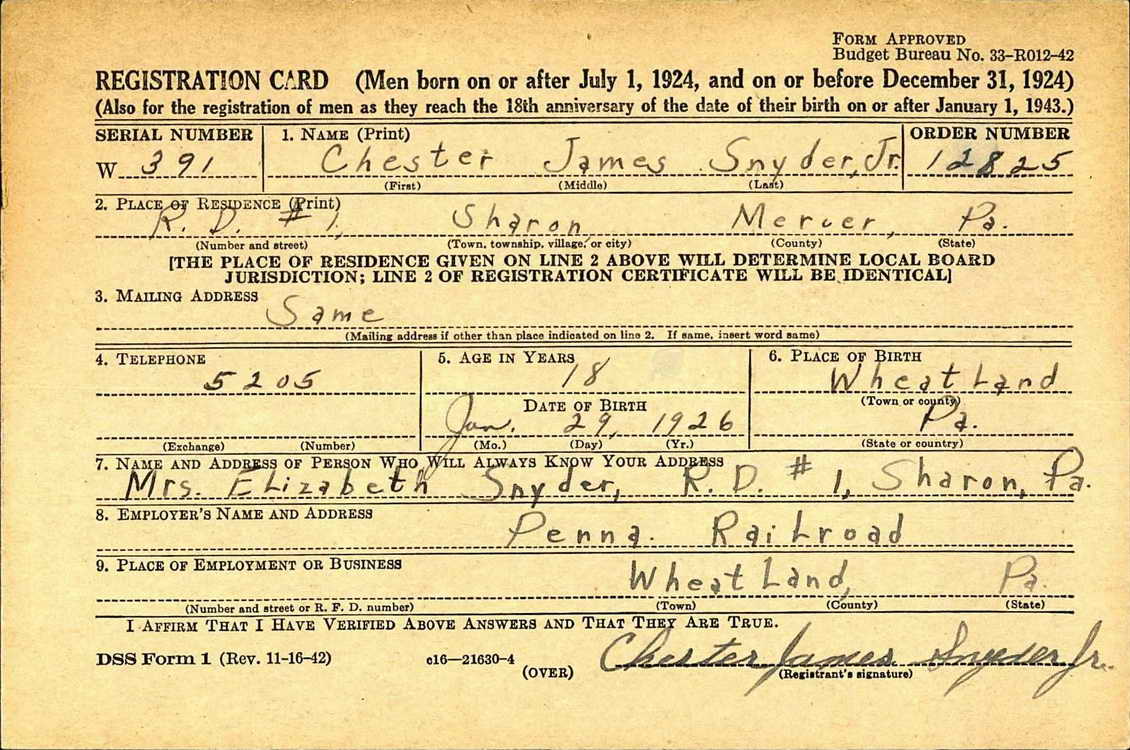 FORM APPROVED
Budget Bureau No. 33-R012-42
REGISTRATION CARD (Men born on or after July 1, 1924, and on or before December 31, 1924)
(Also for the registration of men as they reach the 18th anniversary of the date of their birth on or after January 1, 1943.)
SERIAL NUMBER 1. NAME (Print) ORDER NUMBER
W 391 Chester James Snyder, Jr. 12825
(First) (Middle) (Last)
2. PLACE OF RESIDENCE (Print)
R. D. #1, Sharon, Mercer, Pa.
(Number and street) (Town, township, village, or city) (County) (State)
[THE PLACE OF RESIDENCE GIVEN ON LINE 2 ABOVE WILL DETERMINE LOCAL BOARD
JURISDICTION; LINE 2 OF REGISTRATION CERTIFICATE WILL BE IDENTICAL]
3. MAILING ADDRESS
Same
(Mailing address if other than place indicated on line 2. If same, insert word same)
4. TELEPHONE 5. AGE IN YEARS 6. PLACE OF BIRTH
5205 18 Wheatland
DATE OF BIRTH (Town or county)
Jan. 29, 1926 Pa.
(Exchange) (Number) (Mo.) (Day) (Yr.) (State or country)
7. NAME AND ADDRESS OF PERSON WHO WILL ALWAYS KNOW YOUR ADDRESS
Mrs. Elizabeth Snyder, R. D. #1, Sharon, Pa.
8. EMPLOYER'S NAME AND ADDRESS
Penna. Railroad
9. PLACE OF EMPLOYMENT OR BUSINESS
Wheatland, Pa.
(Number and street or R. F. D. number) (Town) (County) (State)
I AFFIRM THAT I HAVE VERIFIED ABOVE ANSWERS AND THAT THEY ARE TRUE.
DSS Form 1 (Rev. 11-16-42) c16—21630-4 (OVER) Chester James Snyder Jr.
(Registrant's signature)